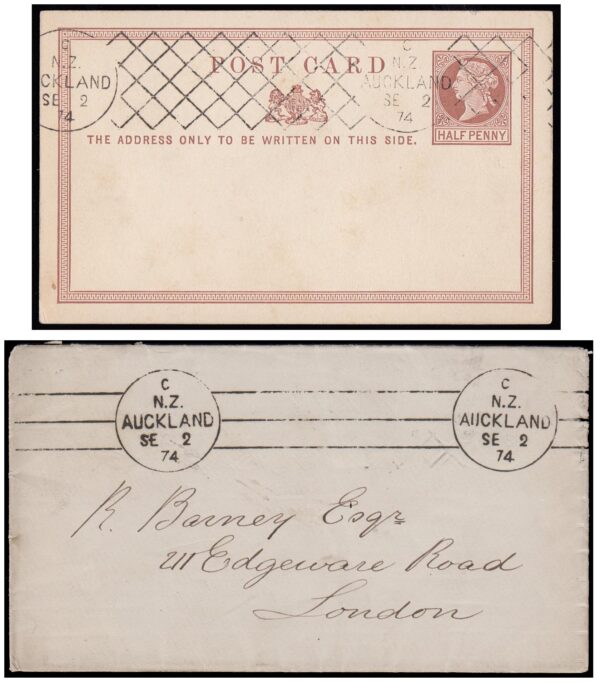 C
N.Z.
AUCKLAND
SE 2
74
POST CARD
C
N.Z.
AUCKLAND
SE 2
74
HALF PENNY
THE ADDRESS ONLY TO BE WRITTEN ON THIS SIDE.
C
N.Z.
AUCKLAND
SE 2
74
C
N.Z.
AUCKLAND
SE 2
74
R. Barney Esqr
211 Edgeware Road
London